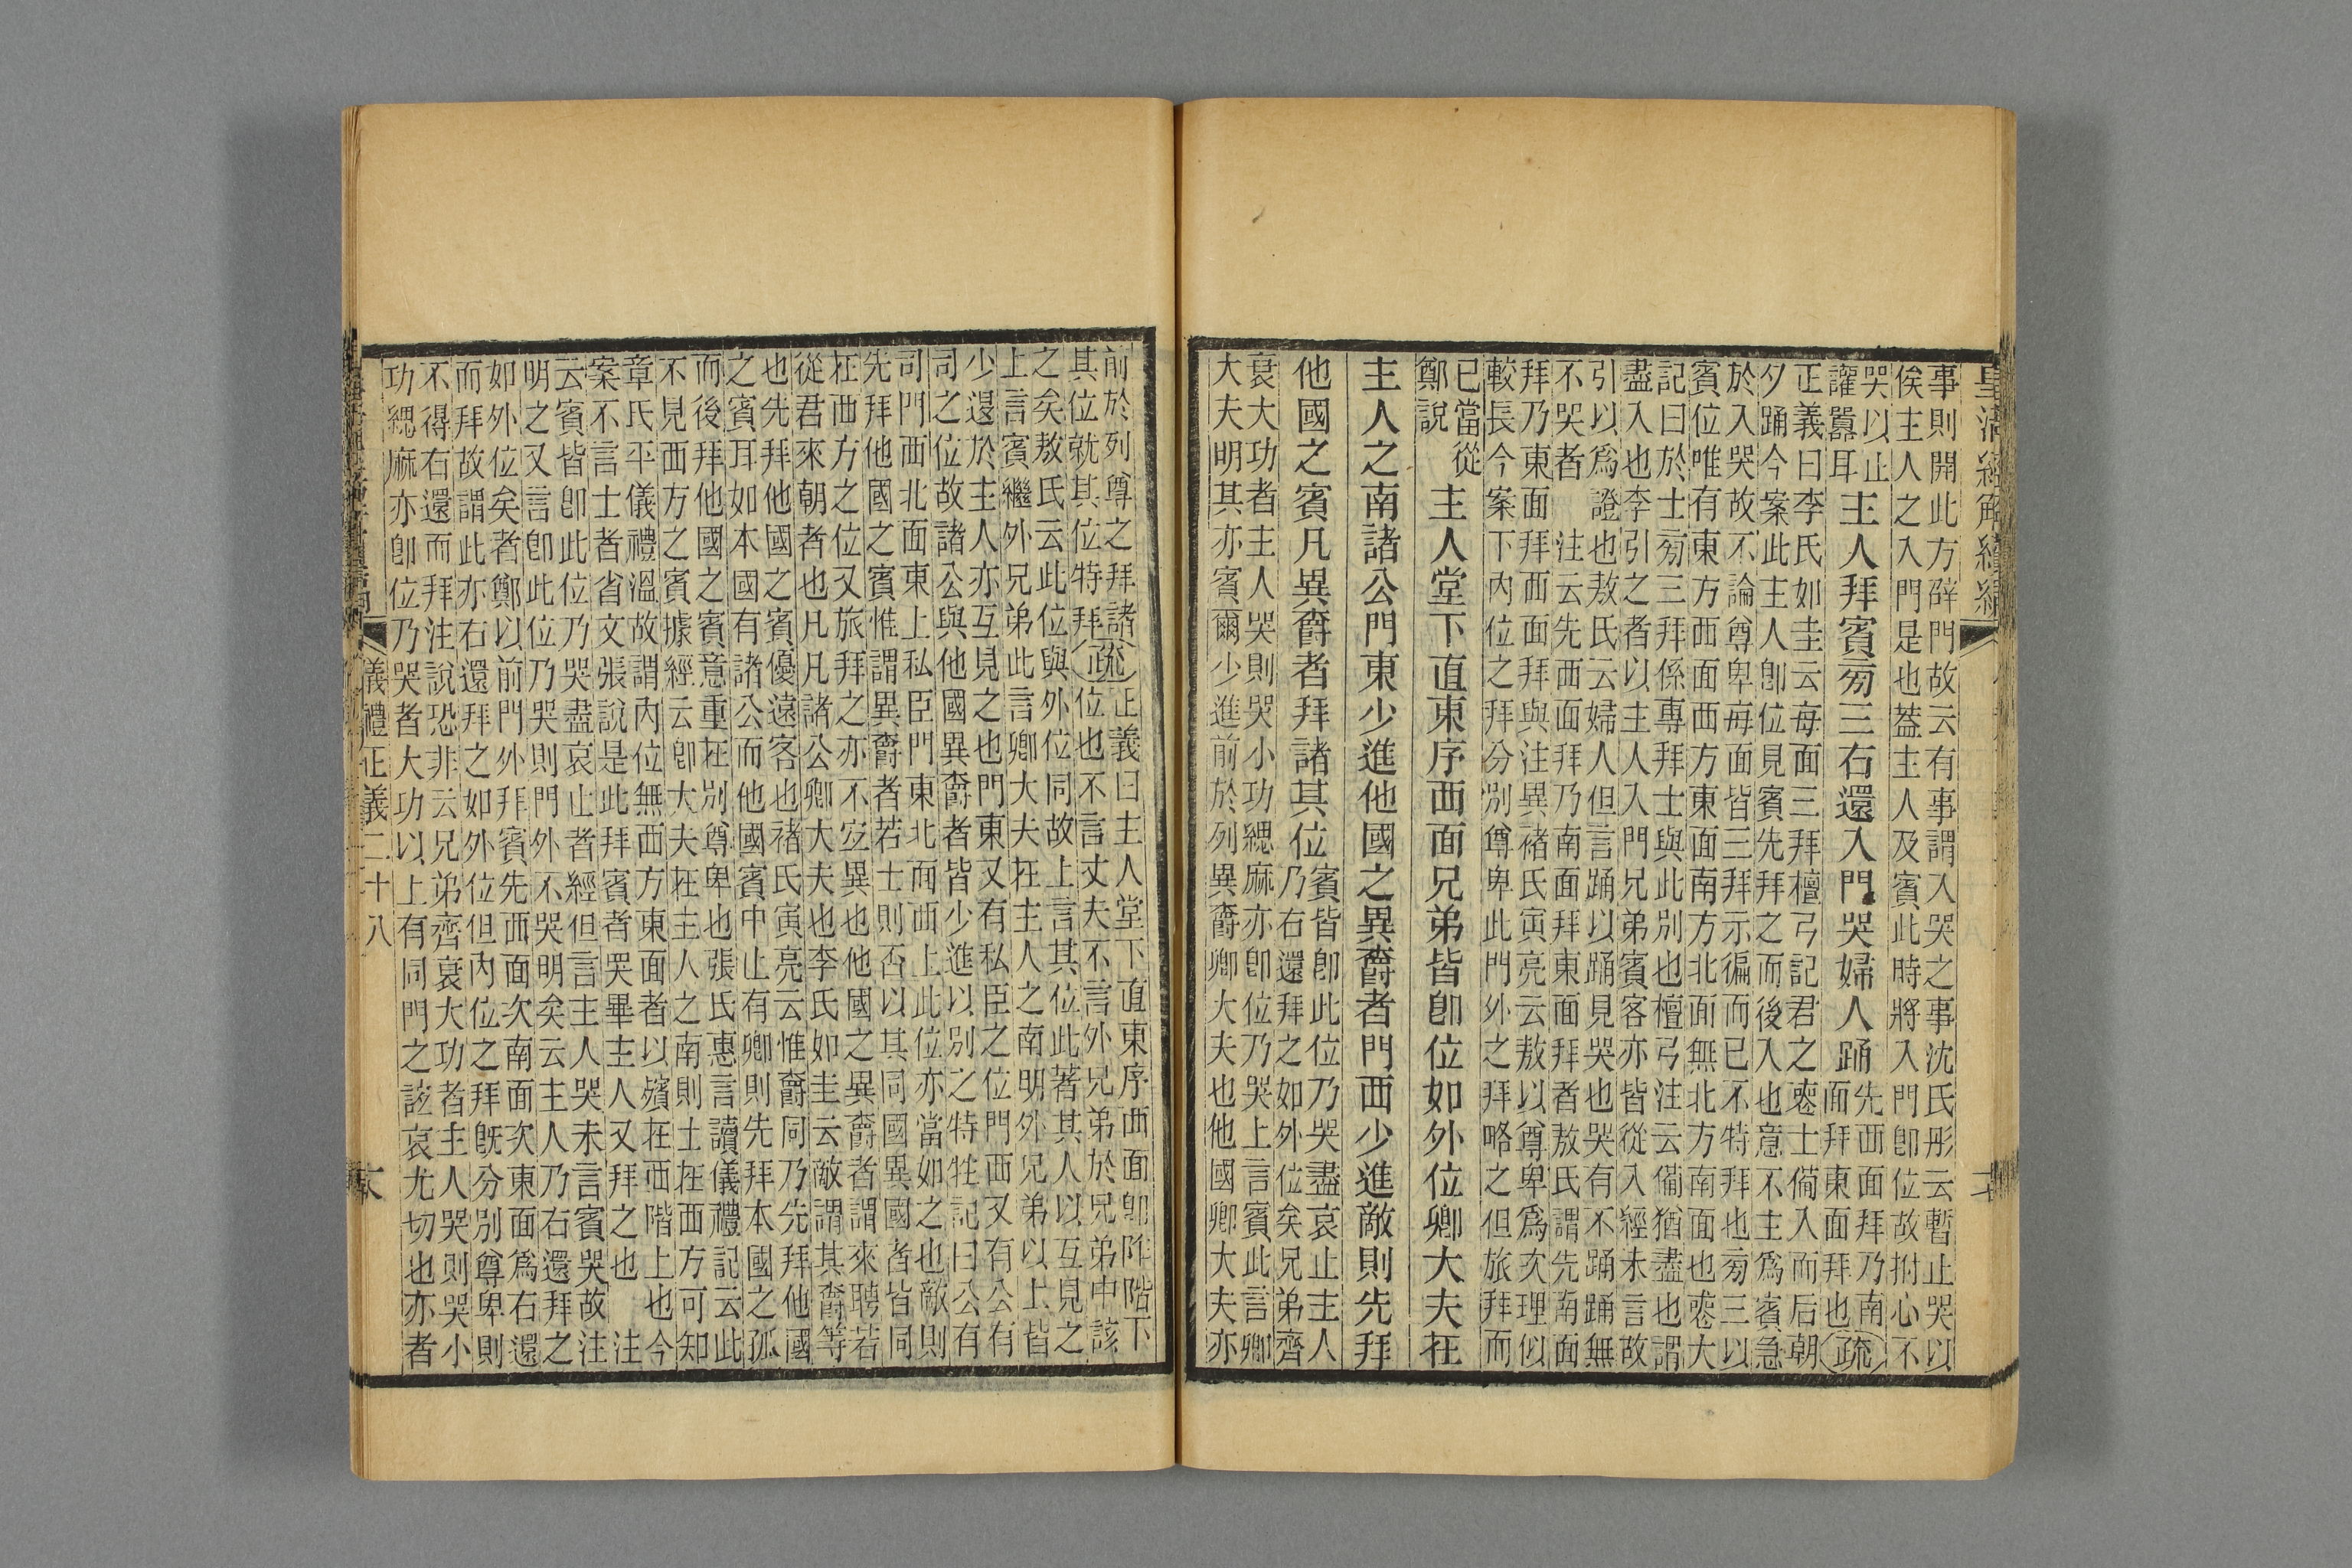 皇清經解續編
事則開此方辟門故云有事謂入哭之事沈氏彤云暫止哭以
俟主人之入門是也葢主人及賓此時將入門卽位故拊心不
哭以止
讙囂耳
主人拜賓旁三右還入門哭婦人踊
先西面拜乃南
面拜東面拜也
疏
正義曰李氏如圭云每面三拜檀弓記君之喪士備入而后朝
夕踊今案此主人卽位見賓先拜之而後入也意不主爲賓急
於入哭故不論尊卑每面皆三拜示徧而已不特拜也旁三以
賓位唯有東方西面西方東面南方北面無北方南面也喪大
記曰於士旁三拜係專拜士與此別也檀弓注云備猶盡也謂
盡入也李引之者以主人入門兄弟賓客亦皆從入經未言故
引以爲證也敖氏云婦人但言踊以踊見哭也哭有不踊踊無
不哭者 注云先西面拜乃南面拜東面拜者敖氏謂先南面
拜乃東面拜西面拜與注異褚氏寅亮云敖以尊卑爲次理似
較長今案下內位之拜分別尊卑此門外之拜略之但旅拜而
已當從
鄭說
主人堂下直東序西面兄弟皆卽位如外位卿大夫在
主人之南諸公門東少進他國之異爵者門西少進敵則先拜
他國之賓凡異爵者拜諸其位
賓皆卽此位乃哭盡哀止主人
乃右還拜之如外位矣兄弟齊
衰大功者主人哭則哭小功緦麻亦卽位乃哭上言賓此言卿
大夫明其亦賓爾少進前於列異爵卿大夫也他國卿大夫亦
前於列尊之拜諸
其位就其位特拜
疏
正義曰主人堂下直東序西面卽阼階下
位也不言丈夫不言外兄弟於兄弟中該
之矣敖氏云此位與外位同故上言其位此著其人以互見之
上言賓繼外兄弟此言卿大夫在主人之南明外兄弟以上皆
少退於主人亦互見之也門東又有私臣之位門西又有公有
司之位故諸公與他國異爵者皆少進以別之特牲記曰公有
司門西北面東上私臣門東北面西上此位亦當如之也敵則
先拜他國之賓惟謂異爵者若士則否以其同國異國者皆同
在西方之位又旅拜之亦不定異也他國之異爵者謂來聘若
從君來朝者也凡凡諸公卿大夫也李氏如圭云敵謂其爵等
也先拜他國之賓優遠客也褚氏寅亮云惟爵同乃先拜他國
之賓耳如本國有諸公而他國賓中止有卿則先拜本國之孤
而後拜他國之賓意重在別尊卑也張氏惠言讀儀禮記云此
不見西方之賓據經云卽大夫在主人之南則士在西方可知
章氏平儀禮溫故謂內位無西方東面者以殯在西階上也今
案不言士者省文張說是此拜賓者哭畢主人又拜之也 注
云賓皆卽此位乃哭盡哀止者經但言主人哭未言賓哭故注
明之又言卽此位乃哭則門外不哭明矣云主人乃右還拜之
如外位矣者鄭以前門外拜賓先西面次南面次東面爲右還
而拜故謂此亦右還拜之如外位但內位之拜旣分別尊卑則
不得右還而拜注說恐非云兄弟齊衰大功者主人哭則哭小
功緦麻亦卽位乃哭者大功以上有同門之該哀尤切也亦者
儀禮正義二十八